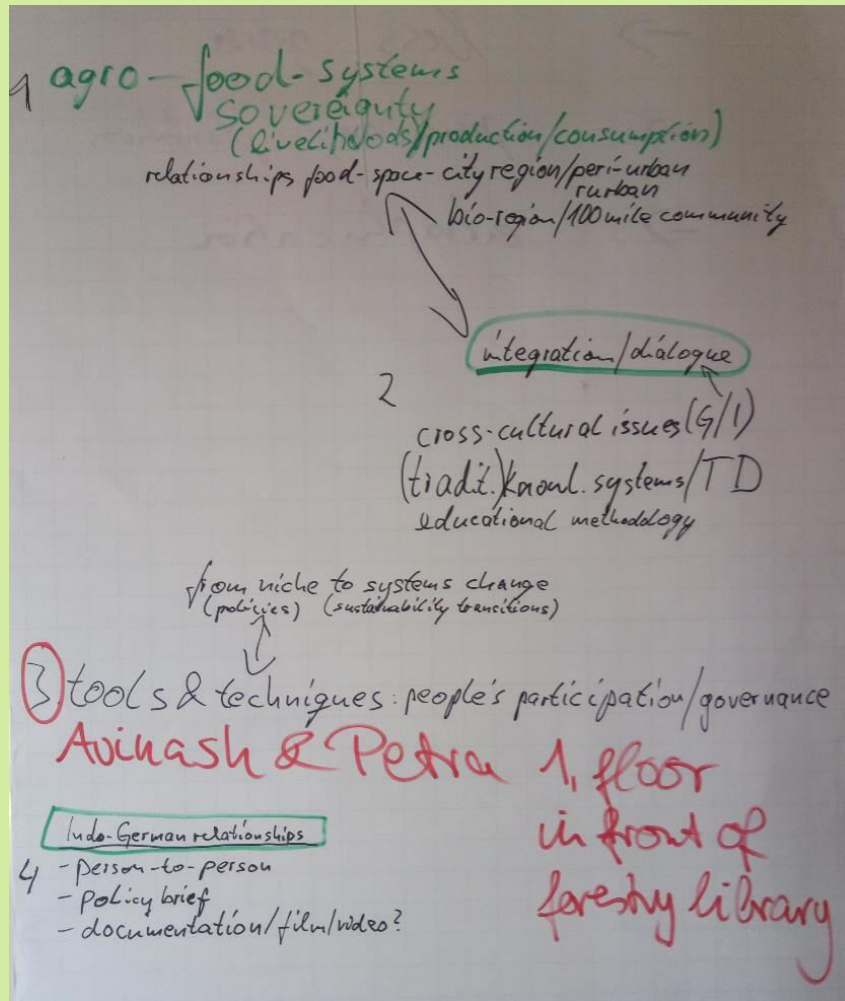 1 agro-food-systems
sovereignty
(livelihoods/production/consumption)
relationships food-space-city region/peri-urban
rurban
bio-region/100 mile community
integration/dialogue
2
cross-cultural issues (G/I)
(tradit.) knowl. systems/TD
educational methodology
from niche to systems change
(policies) (sustainability transitions)
3. tools & techniques: people's participation/governance
Avinash & Petra 1. floor
in front of
forestry library
Indo-German relationships
4 - person-to-person
- policy brief
- documentation/film/video?